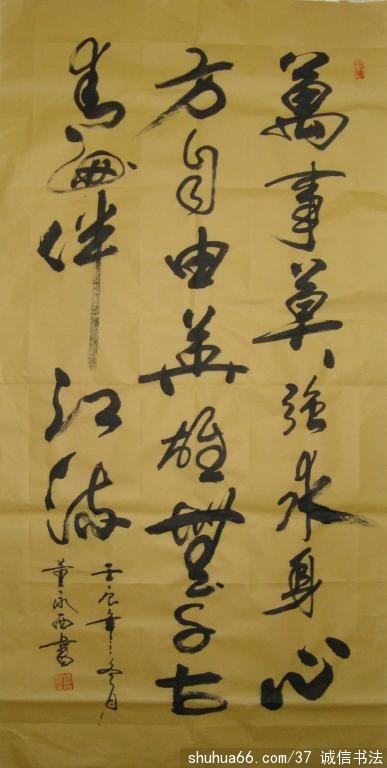 萬事莫強求身心
方自由英雄無千古
伴江流
壬辰年冬月
董永西書
shuhua66.com/37 诚信书法